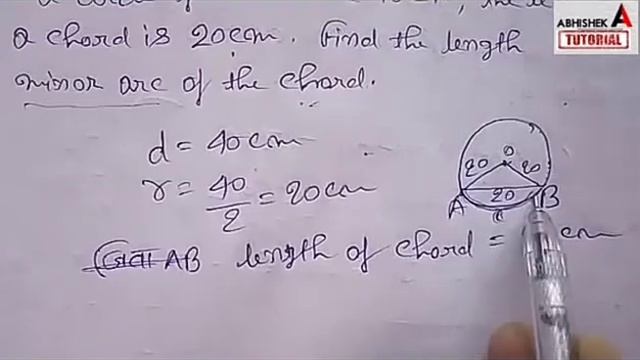 ABHISHEK
TUTORIAL
a chord is 20cm. Find the length
minor arc of the chord.
d = 40cm
r = 40/2 = 20cm
20 O 20
20
A B
AB length of chord = cm